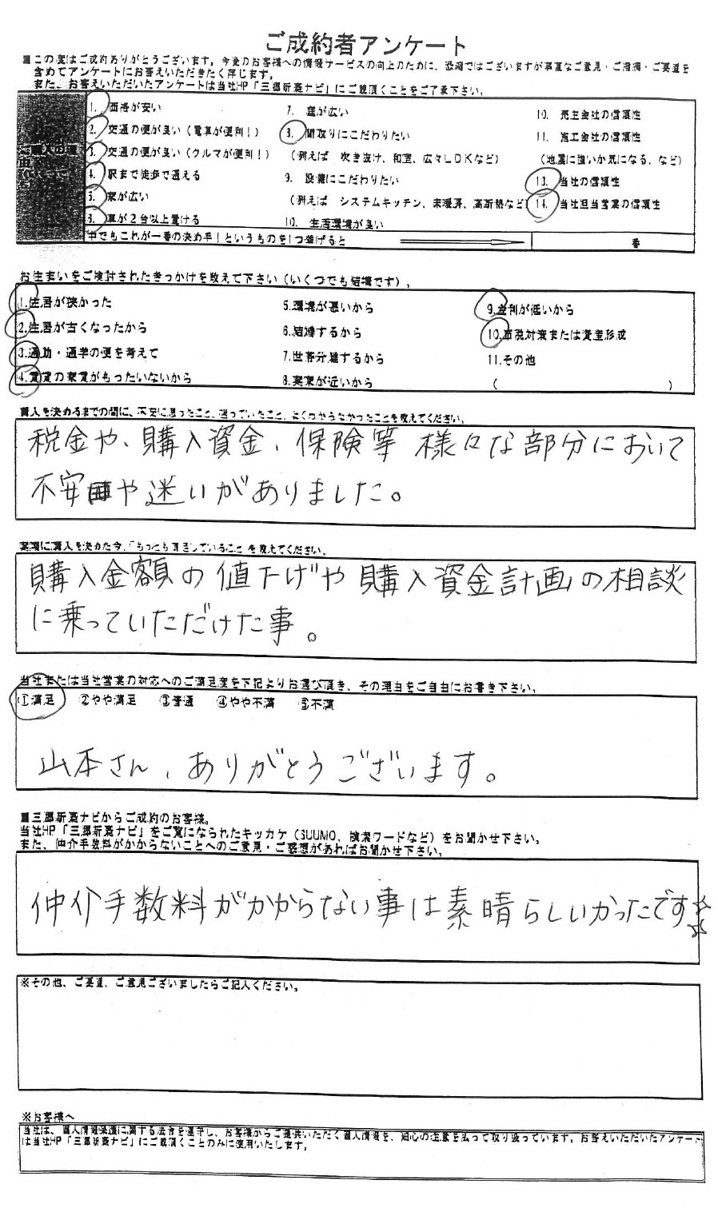 ご成約者アンケート
■この度はご成約ありがとうございます。今後のお客様への情報サービスの向上のために、恐縮ではございますが率直なご意見・ご指摘・ご要望を
含めてアンケートにお答えいただきたく存じます。
また、お答えいただいたアンケートは当社HP「三郷新築ナビ」にご掲頂くことをご了承下さい。
1. 価格が安い
2. 交通の便が良い(電車が便利!)
3. 交通の便が良い(クルマが便利!)
4. 駅まで徒歩で通える
5. 家が広い
6. 車が2台以上置ける
7. 庭が広い
8. 間取りにこだわりたい
(例えば 吹き抜け、和室、広々LDKなど)
9. 設備にこだわりたい
(例えば システムキッチン、床暖房、高断熱など)
10. 生活環境が良い
10. 売主会社の信頼性
11. 施工会社の信頼性
(地震に強いか気になる、など)
13. 当社の信頼性
14. 当社担当営業の信頼性
中でもこれが一番の決め手!というものを1つ挙げると
番
お住まいをご検討されたきっかけを教えて下さい(いくつでも結構です)。
1.住居が狭かった
2.住居が古くなったから
3.通勤・通学の便を考えて
4.賃貸の家賃がもったいないから
5.環境が悪いから
6.結婚するから
7.世帯分離するから
8.実家が近いから
9.金利が低いから
10.節税対策または資産形成
11.その他
( )
購入を決めるまでの間に、不安に思ったこと、迷っていたこと、よくわからなかったことを教えてください。
税金や、購入資金、保険等 様々な部分において
不安や迷いがありました。
実際に購入を決めた今、「もっとも満足していること」を教えてください。
購入金額の値下げや購入資金計画の相談
に乗っていただけた事。
当社または当社営業の対応へのご満足度を下記よりお選び頂き、その理由をご自由にお書き下さい。
①満足 ②やや満足 ③普通 ④やや不満 ⑤不満
山本さん、ありがとうございます。
■三郷新築ナビからご成約のお客様。
当社HP「三郷新築ナビ」をご覧になられたキッカケ(SUUMO、検索ワードなど)をお聞かせ下さい。
また、仲介手数料がかからないことへのご意見・ご感想があればお聞かせ下さい。
仲介手数料がかからない事は素晴らしいかったです☆☆
※その他、ご要望、ご意見ございましたらご記入ください。
※お客様へ
当社は、個人情報保護に関する法令を遵守し、お客様からご提供いただく個人情報を、細心の注意を払って取り扱っています。お答えいただいたアンケート
は当社HP「三郷新築ナビ」にご掲頂くことのみに使用いたします。